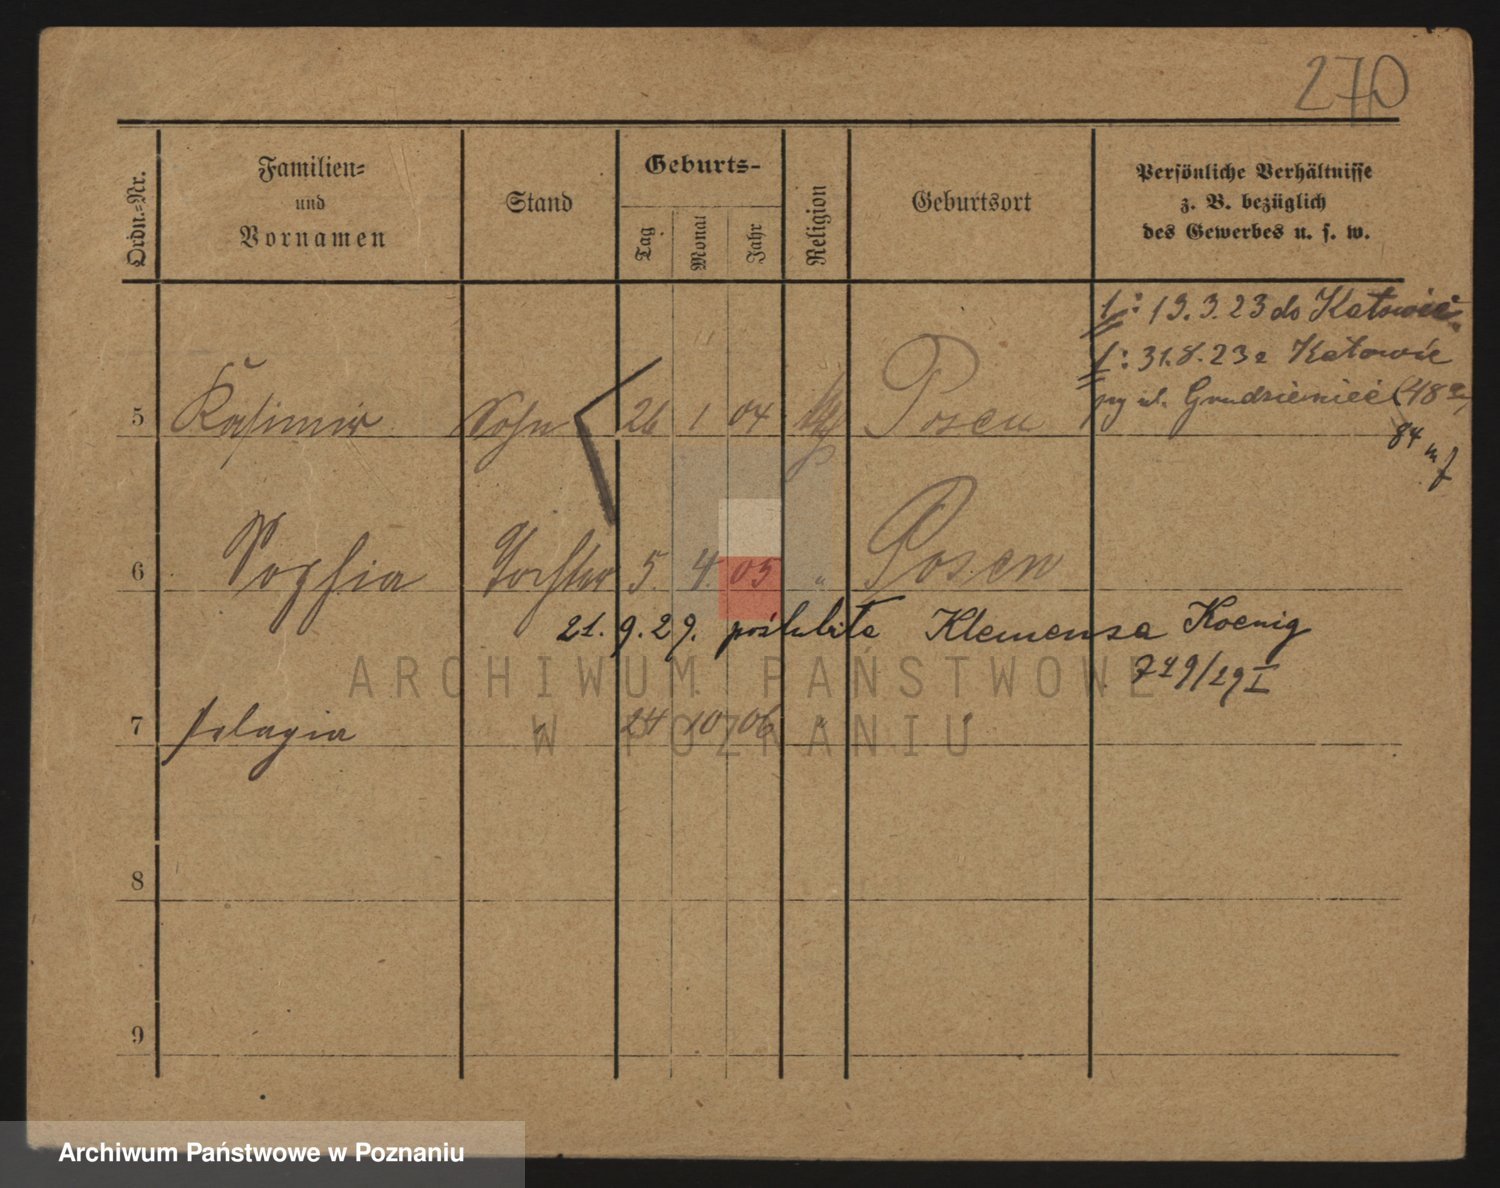 270
Ordn.-Nr.
Familien-
und
Vornamen
Stand
Geburts-
Tag
Monat
Jahr
Religion
Geburtsort
Persönliche Verhältnisse
z. B. bezüglich
des Gewerbes u. s. w.
1: 13.3.23 do Katowic
1: 31.8.23 z Katowic
5 Kasimir Sohn 26 1 04 Posen
84
6 Sophia Tochter 5. 4. 05 " Posen
21.9.29. poślubiła Klemensa Koenig
749/29 I
ARCHIWUM PAŃSTWOWE
W POZNANIU
7 Pelagia " 24 10 06 " "
8
9
Archiwum Państwowe w Poznaniu